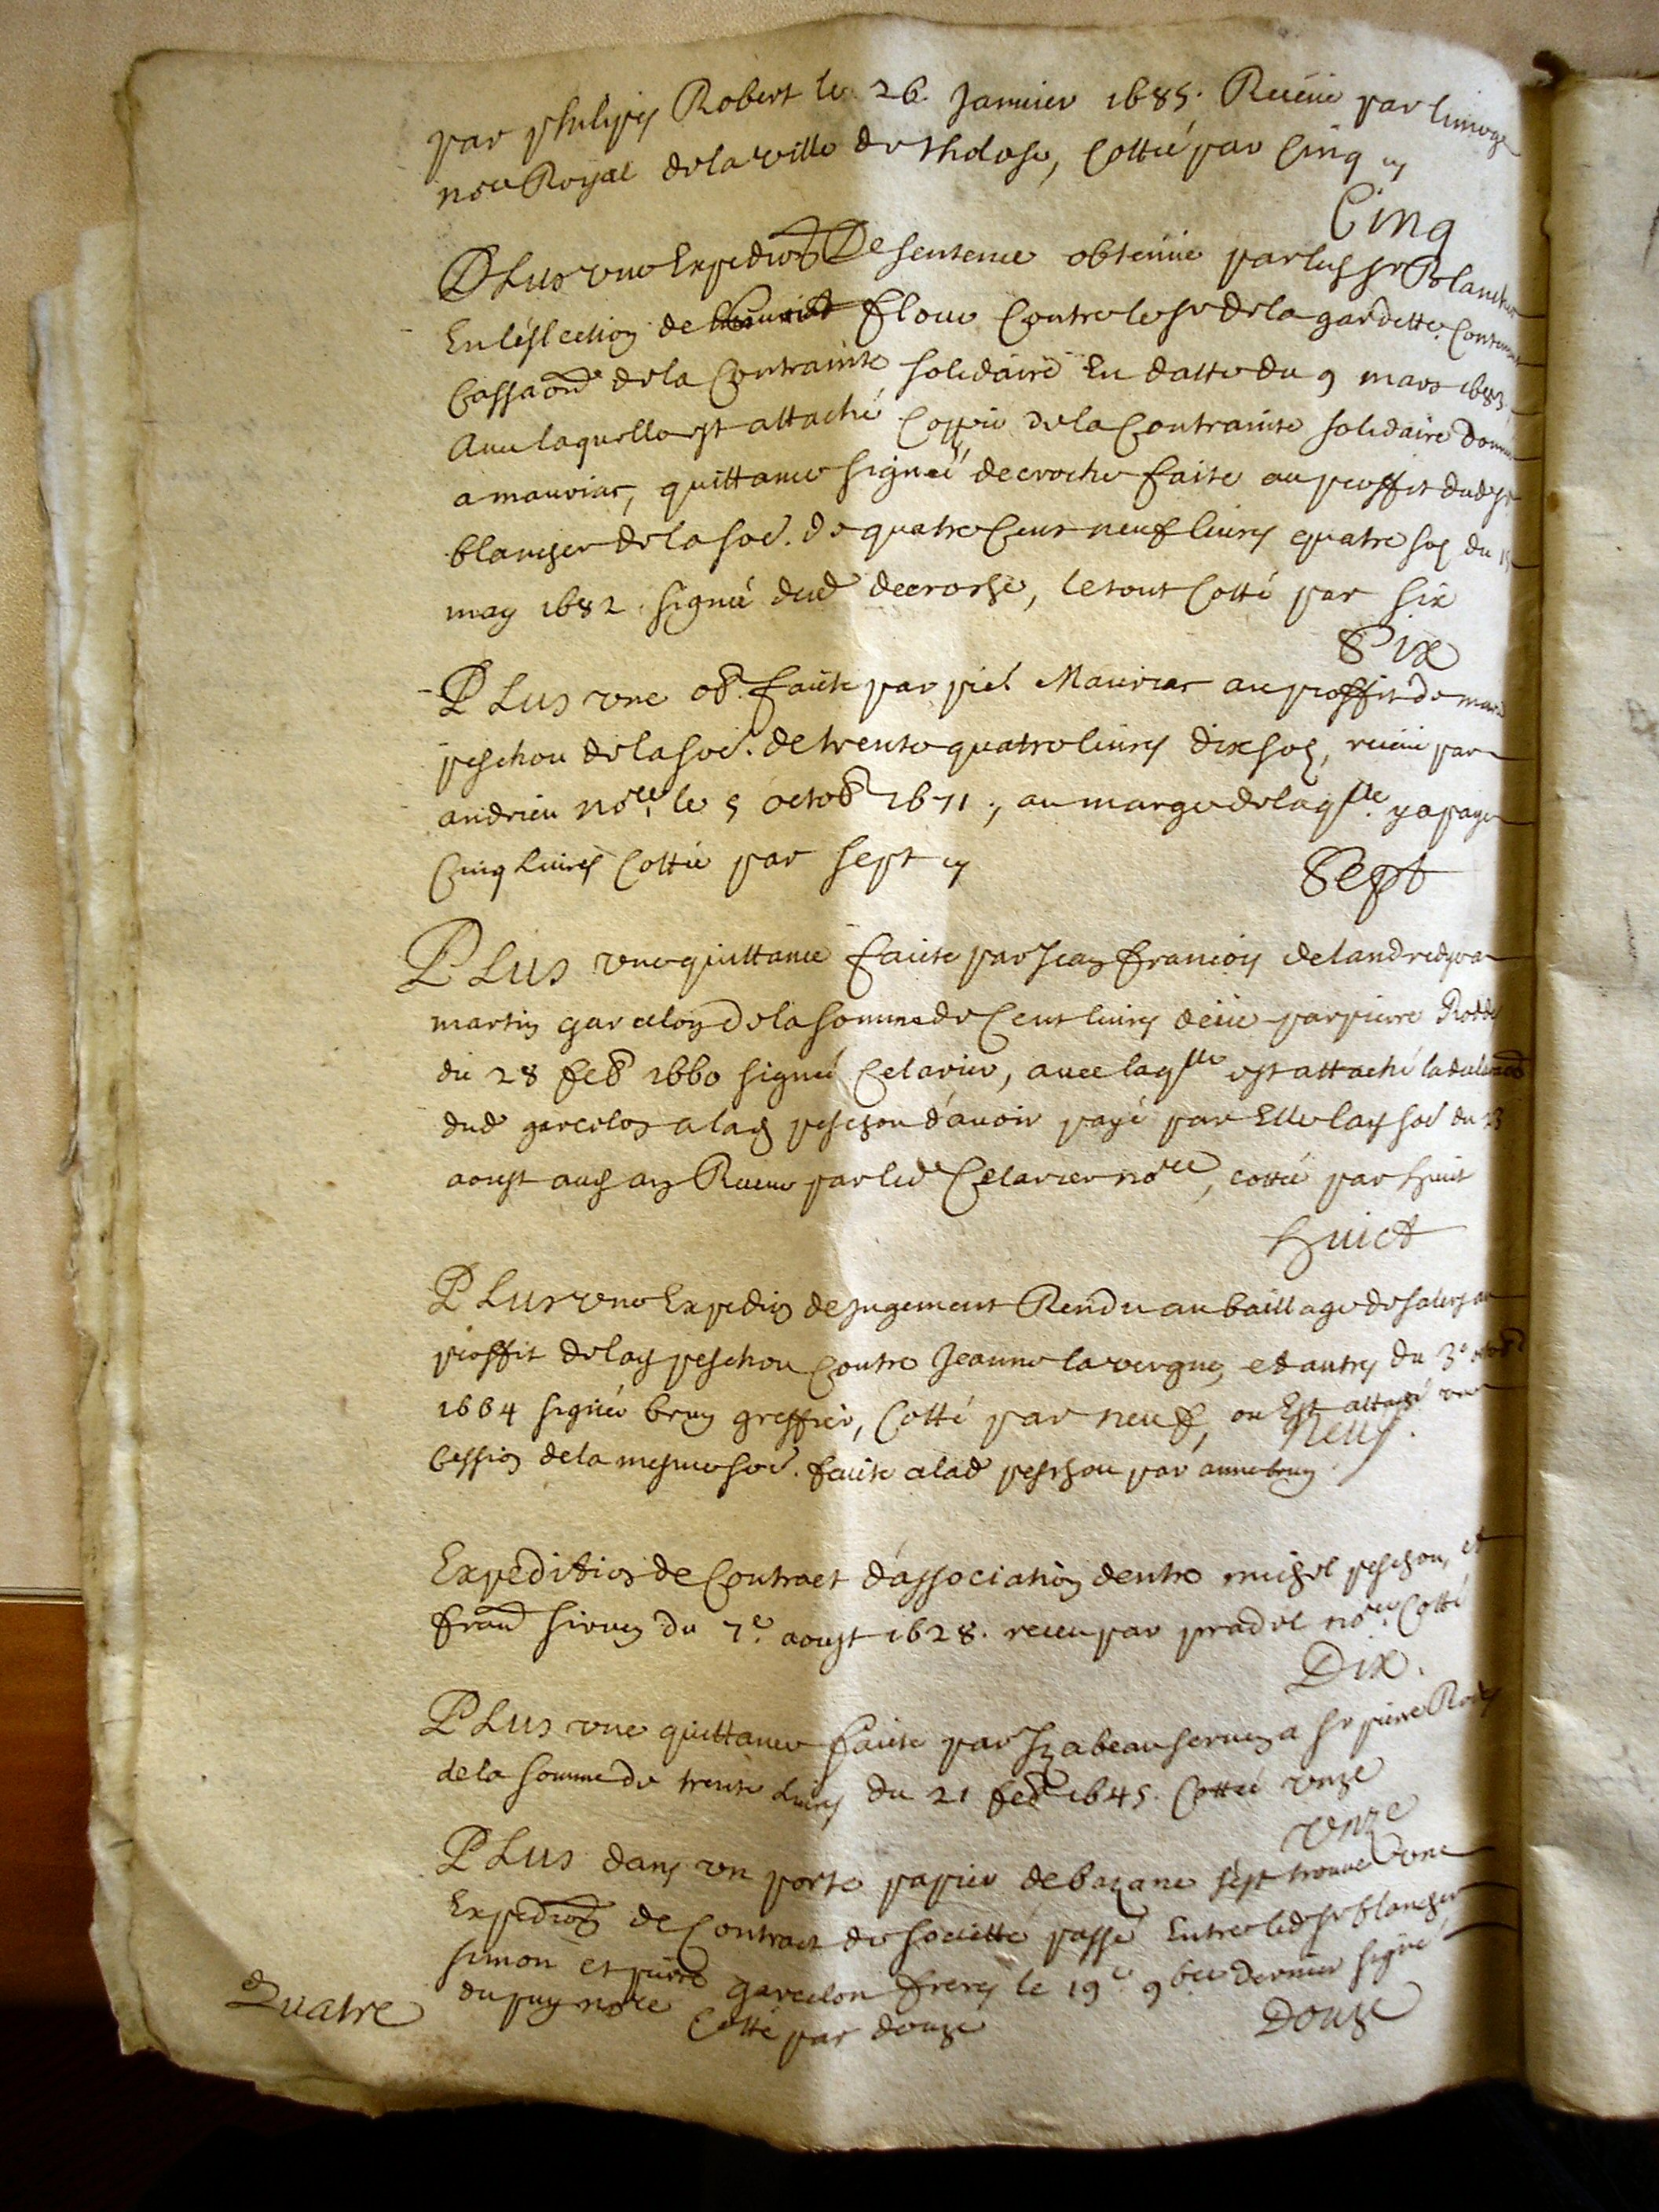 par philipes Robert le 26 Janvier 1685. Receüe par limoge
nore Royal de la ville de tholose, Cottée par Cinq
Cinq
PLus une Expedion De sentence obtenüe par led sr Blancher
En l'eslection de flour Contre le sr de la gardette Contenant
Cassaon de la Contrainte solidaire En datte du 9 mars 1683
Avec laquelle est attaché Coppie de la Contrainte solidaire donnée
a mauriac, quittance signeé decroche faite au proffit dud sr
blancher de la soe. de quatre Cent neuf livres quatre sos du 15
may 1682. signeé dud decroche, le tout Cotté par six
Six
PLus une ob. faitte par pie. Mauriac au proffit de marie
peschou de la soe. de trente quatre livres dix sos, receüe par
andrieu nore. le 5 octob 1671., au marge de laqlle. y a payé
Cinq livres Cottée par sept
Sept
PLus une quittance faicte par Jean françois delandredy a
martin garcelon de la somme de Cent livres deüe par pierre Rodde
du 28 feb 1660 signeé Celarier, avec laqlle est attaché la
dud garcelon a lad peschou d'avoir payé par Elle lad soe du 23
aoust aud an Receue par led Celarier nore, cottée par huit
huict
PLus une Expedion de jugement Rendu au baillage de salers au
proffit de lad peschou Contre Jeanne lavergne, et autres du 3e octob
1664 signeé brun greffier, Cotté par neuf, ou Est attaché une
Neuf.
Cession de la mesme soe. faite a lad peschou par anne brun
Expedition de Contract d'association dentre michel peschou, et
frand sirven du 7e. aoust 1628. receu par pradel nore. Cotté
Dix.
PLus une quittance faicte par Izabeau serven a sr pierre Rodes
de la somme de trente Livres du 21 feb 1645. Cottée unze
unze
PLus dans un porte papier de bazane s'est trouvé une
Expedion de Contract de sociétté passé Entre led sr blancher
simon et pierre garcelon freres le 19e. 9bre dernier signé
dupuy nore Cotté par douze
Douze
Quatre